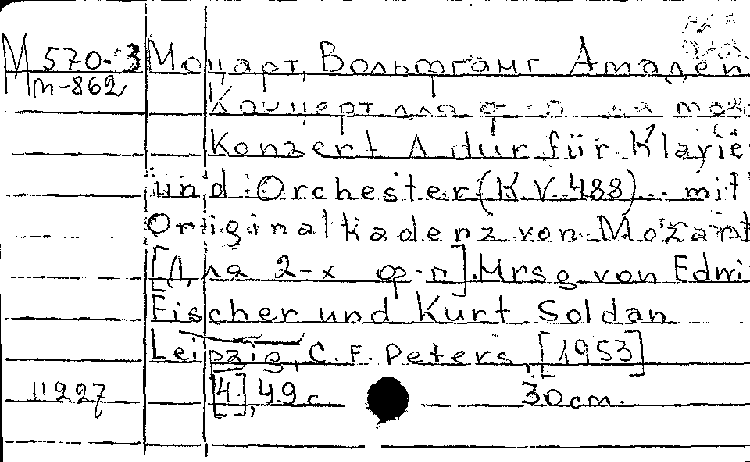 М 570-3 Моцарт, Вольфганг Амадей
Мп-862
Концерт для ф-п. ля маж
Konzert A dur für Klavie
und Orchester (K V. 488) mit
Originalkadenz von Mozart
[Для 2-х ф-п]. Hrsg von Edwi
Fischer und Kurt Soldan
Leipzig, C. F. Peters, [1953]
11227 [4], 49 с 30 cm.